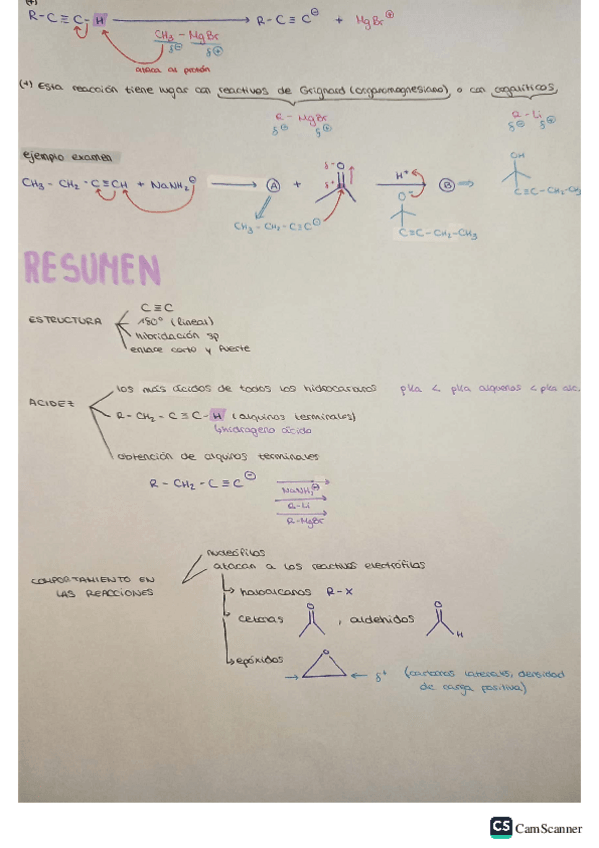 (+)
R-C≡C-H → R-C≡C⊖ + MgBr⊕
CH₃-MgBr
δ⊖ δ⊕
ataca al protón
(+) Esta reacción tiene lugar con reactivos de Grignard (organomagnesiano), o con organolíticos,
R-MgBr R-Li
δ⊖ δ⊕ δ⊖ δ⊕
ejemplo examen
CH₃-CH₂-C≡CH + NaNH₂ → A + δ-O δ+ H⁺ → B ⇒ OH
CH₃-CH₂-C≡C⊖ O⊖ C≡C-CH₂-CH₃ C≡C-CH₂-CH₃
RESUMEN
ESTRUCTURA
C≡C
180° (lineal)
hibridación sp
enlace corto y fuerte
ACIDEZ
los más ácidos de todos los hidrocarburos pKa < pKa alquenos < pKa alc.
R-CH₂-C≡C-H (alquinos terminales)
↳hidrógeno ácido
obtención de alquinos terminales
R-CH₂-C≡C⊖
NaNH₂
R-Li
R-MgBr
COMPORTAMIENTO EN
LAS REACCIONES
nucleófilos
atacan a los reactivos electrófilos
↳ haloalcanos R-X
↳ cetonas O , aldehídos O H
↳ epóxidos O
→ ← δ⁺ (carbonos laterales, densidad
de carga positiva)
CS CamScanner